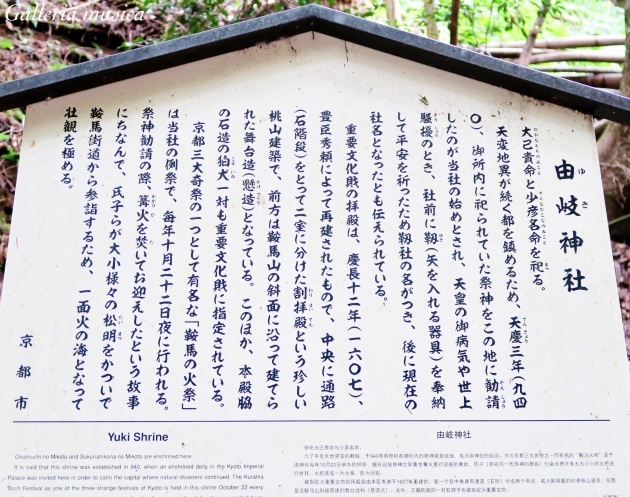 Galleria musica
由岐神社
ゆき
大己貴命と少彦名命を祀る。
天変地異が続く都を鎮めるため、天慶三年（九四
〇）、御所内に祀られていた祭神をこの地に勧請
したのが当社の始めとされ、天皇の御病気や世上
騒擾のとき、社前に靱（矢を入れる器具）を奉納
して平安を祈ったため靱社の名がつき、後に現在の
社名となったとも伝えられている。
重要文化財の拝殿は、慶長十二年（一六〇七）、
豊臣秀頼によって再建されたもので、中央に通路
（石階段）をとって二室に分けた割拝殿という珍しい
桃山建築で、前方は鞍馬山の斜面に沿って建てら
れた舞台造（懸造）となっている。このほか、本殿脇
の石造の狛犬一対も重要文化財に指定されている。
京都三大奇祭の一つとして有名な「鞍馬の火祭」
は当社の例祭で、毎年十月二十二日夜に行われる。
祭神勧請の際、篝火を焚いてお迎えしたという故事
にちなんで、氏子らが大小様々の松明をかついで
鞍馬街道から参詣するため、一面火の海となって
壮観を極める。
京都市
Yuki Shrine
Onamuchi no Mikoto and Sukunahikona no Mikoto are enshrined here.
It is said that this shrine was established in 940, when an enshrined deity in the Kyoto Imperial
Palace was invited here in order to calm the capital where natural disasters continued. The Kurama
Torch Festival as one of the three strange festivals of Kyoto is held in this shrine October 22
由岐神社